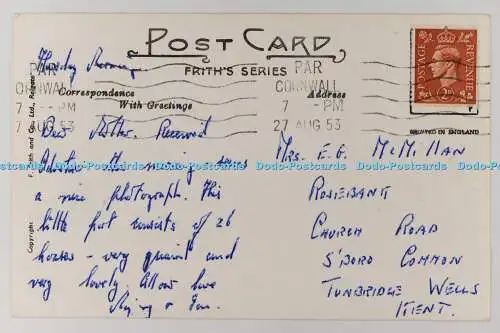 POST CARD
FRITH'S SERIES
Correspondence
With Greetings
Address
PAR
CORNWALL
7 -- PM
53
PAR
CORNWALL
7 - PM
27 AUG 53
POSTAGE
REVENUE
PRINTED IN ENGLAND
Copyright
Co., Ltd., Reigate
Thursday Morning
Dear Mother. Received
this morning
a nice photograph. This
little port consists of 26
houses - very quaint and
very lovely. All love
MRS. E.G. MCMILLAN
ROSEBANK
CHURCH ROAD
S'BORO COMMON
TUNBRIDGE WELLS
KENT.
Dodo-Postcards Dodo-Postcards Dodo-Postcards Dodo-Postcards Dodo-Postcards